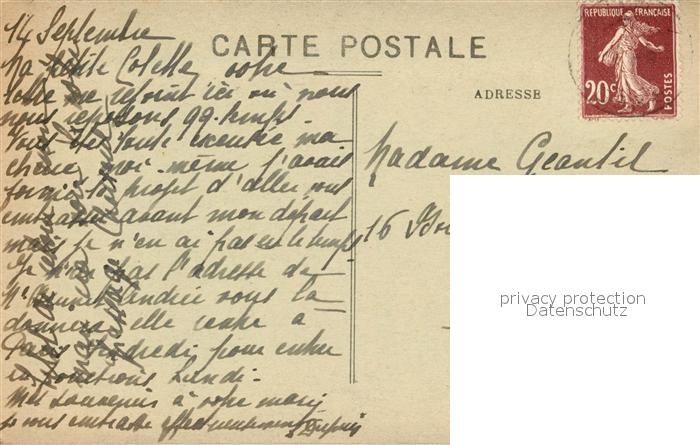 14 Septembre
CARTE POSTALE
Ma petite Colette votre
lettre me rejoint ici où nous
nous reposons qq. temps.
Vous êtes toute excusée ma
chérie moi-même j'avais
formé le projet d'aller vous
embrasser avant mon départ
mais je n'en ai pas eu le temps
Je n'ai pas l'adresse de
Andrée vous la
donnera elle rentre à
Paris vendredi pour entrer
en fonctions Lundi.
Mes souvenirs à votre mari
je vous embrasse affectueusement
ADRESSE
Madame Geantil
16
RÉPUBLIQUE FRANÇAISE
20c
POSTES
privacy protection
Datenschutz